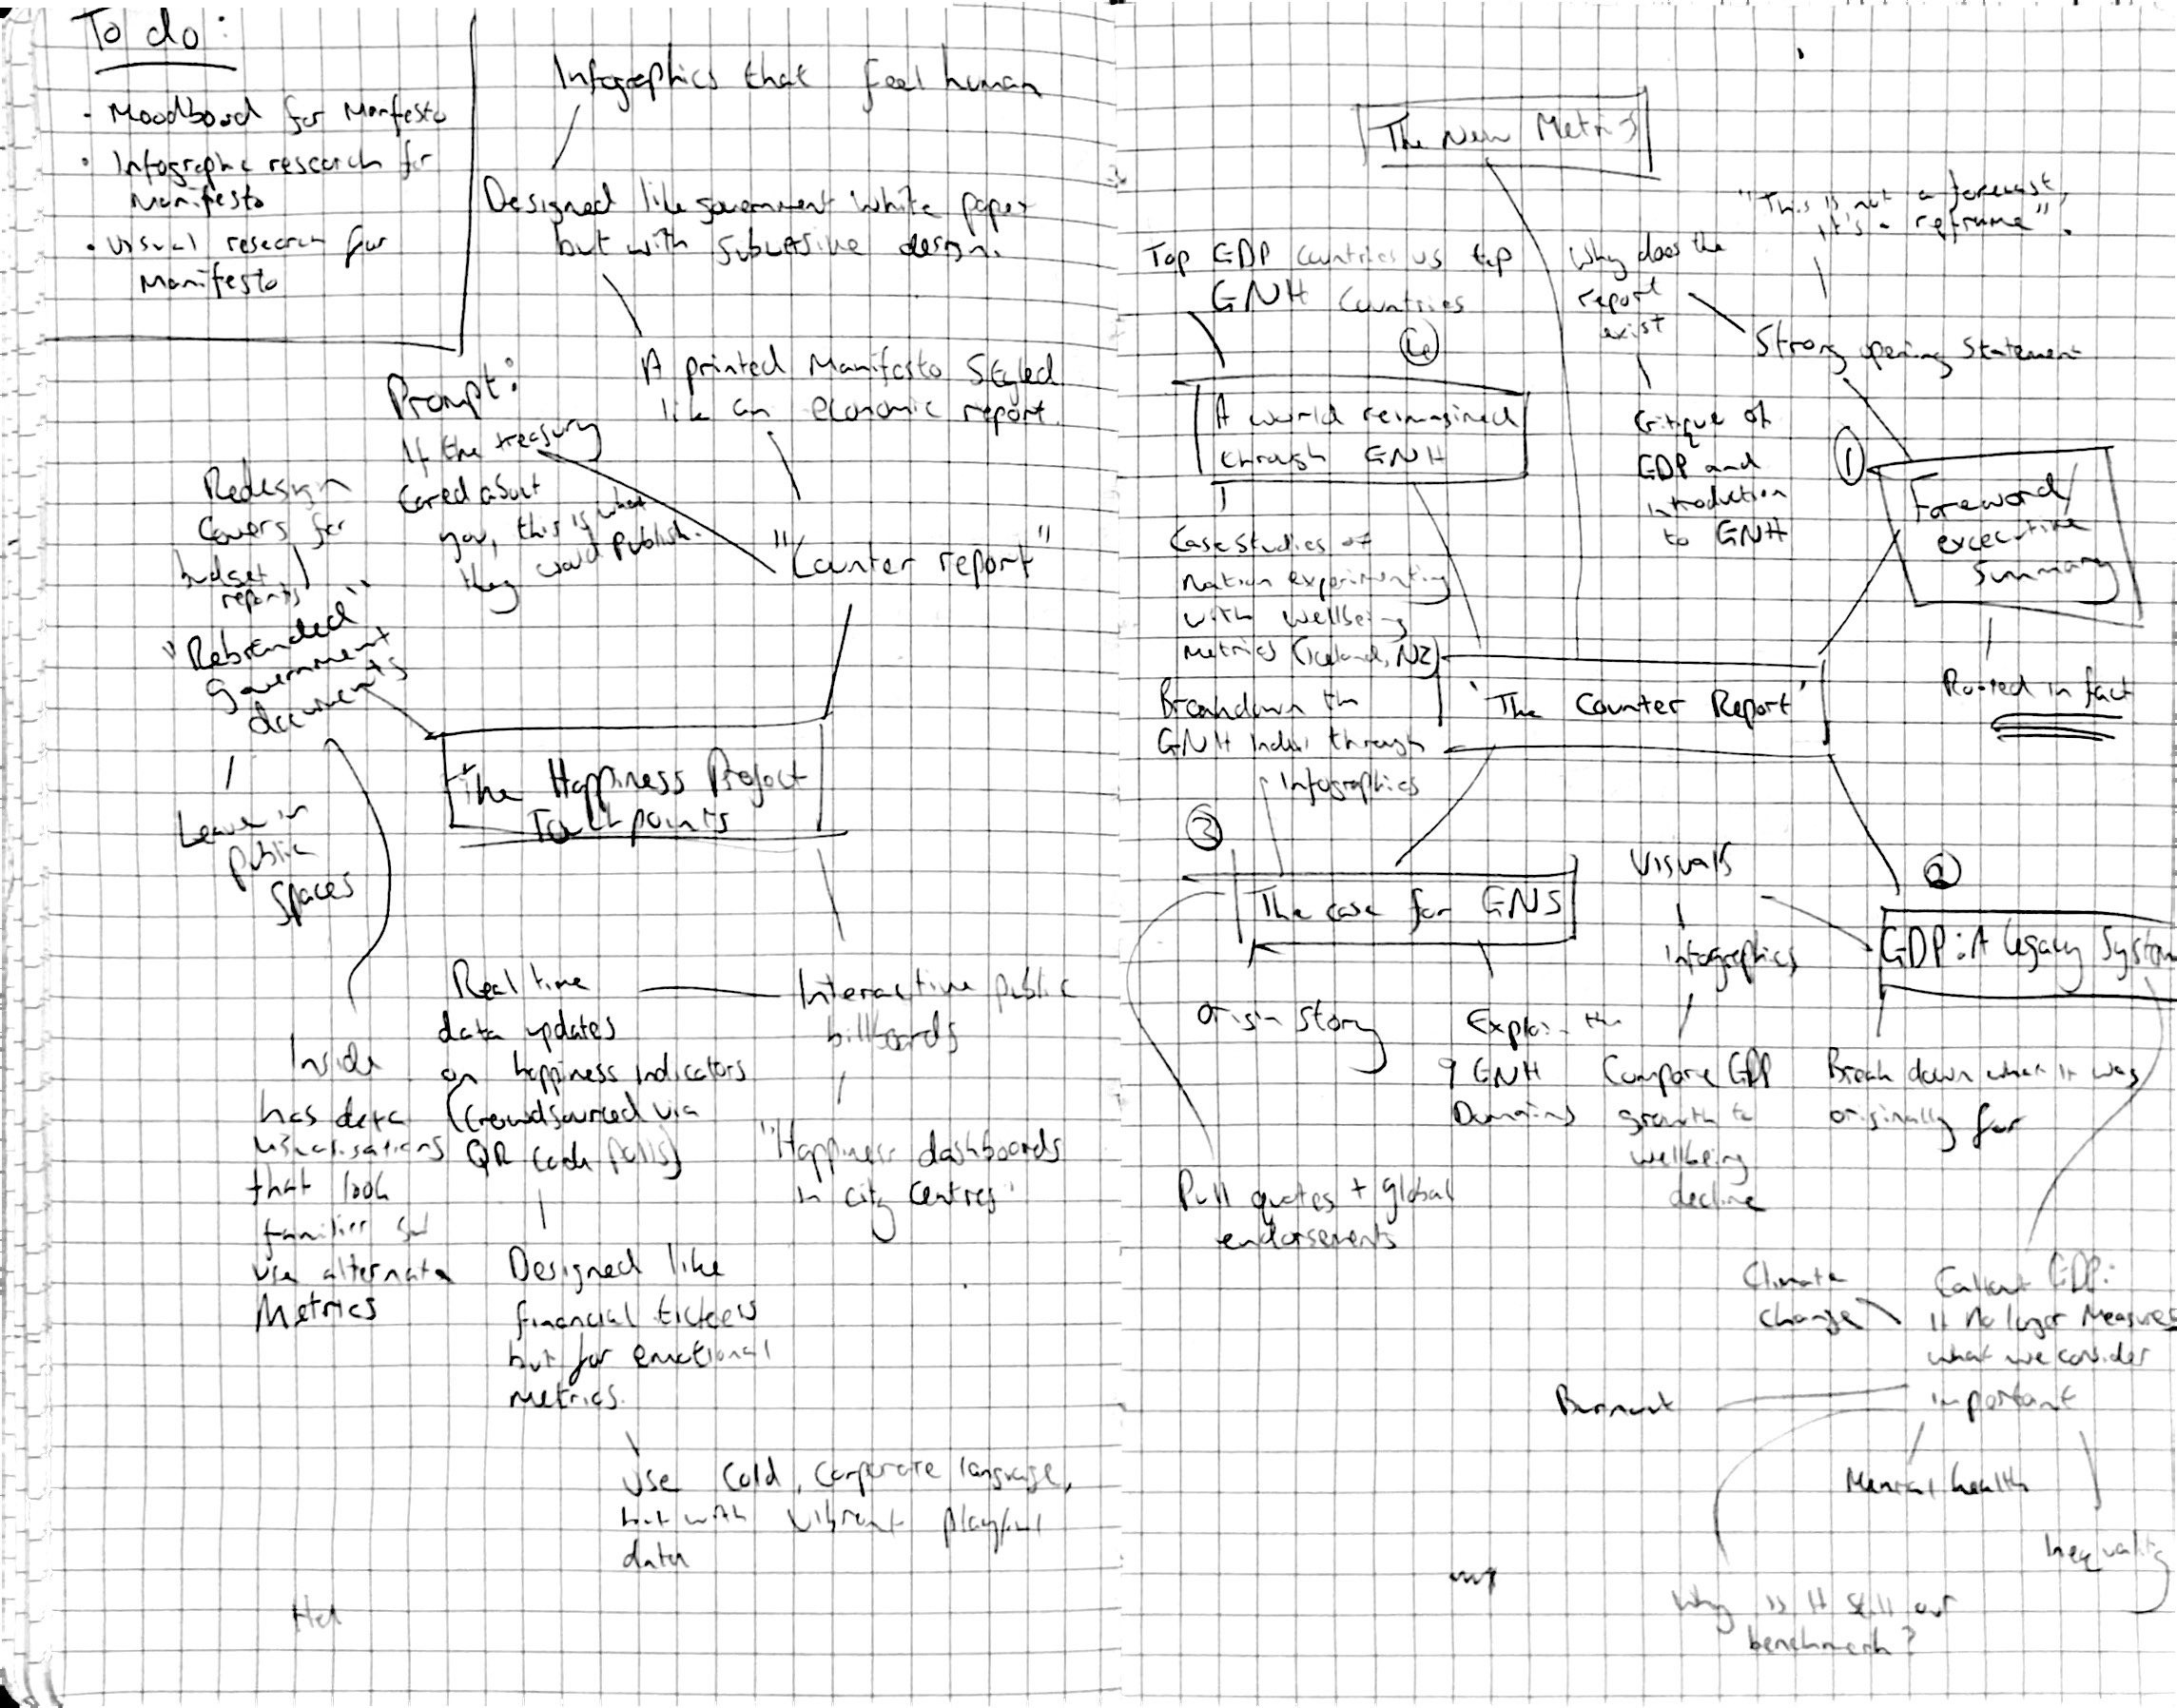 To do:
· Moodboard for Manifesto
· Infographic research for
Manifesto
· Visual research for
Manifesto
Infographics that feel human
Designed like government white paper
but with subversive design.
A printed Manifesto Styled
like an economic report.
"Counter report"
Prompt:
If the treasury
cared about
you, this is what
they would publish.
Redesign
covers for
budget
reports
"Rebranded"
government
documents
Leave in
public
spaces
The Happiness Project
Touchpoints
Inside
has data
visualisations
that look
familiar but
use alternate
Metrics
Real time
data updates
on happiness indicators
(Crowdsourced via
QR code polls)
Interactive public
billboards
"Happiness dashboards
in city centres"
Designed like
financial tickers
but for emotional
metrics.
Use cold, corporate language,
but with vibrant playful
data
The New Metric
"This is not a forecast,
it's a reframe".
Top GDP countries vs top
GNH countries
Why does the
report
exist
Strong opening statement
④
A world reimagined
through GNH
Critique of
GDP and
introduction
to GNH
①
Foreword/
excecutive
summary
Rooted in fact
Case studies of
nation experimenting
with wellbeing
metrics (Iceland, NZ)
'The Counter Report'
Breakdown the
GNH index through
Infographics
③
The case for GNS
Origin Story
Explain the
9 GNH
Domains
Pull quotes + global
endorsements
Visuals
Infographics
Compare GDP
growth to
wellbeing
decline
②
GDP: A Legacy System
Break down what it was
originally for
Climate
change
Callout GDP:
it no longer measures
what we consider
important
Burnout
Mental health
Inequality
Why is it still our
benchmark?